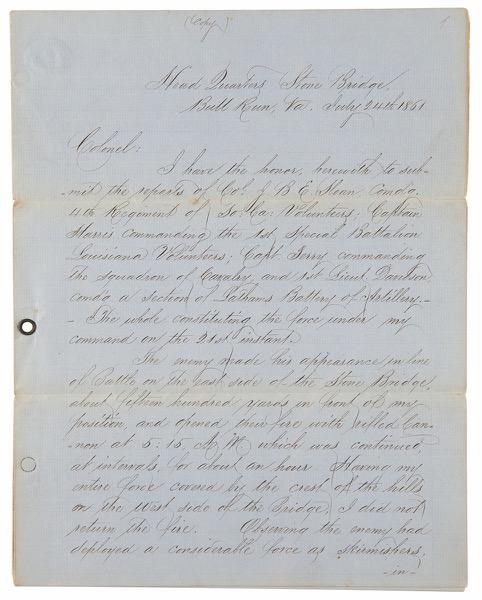 (Copy)
Head Quarters Stone Bridge,
Bull Run, Va. July 24th 1861
Colonel:
I have the honor, herewith to sub-
-mit the reports of Col J B E Sloan comdg
4th Regiment of So: Ca: Volunteers; Captain
Harris commanding the 1st Special Battalion
Louisiana Volunteers; Capt. Terry commanding
the squadron of Cavalry, and 1st Lieut Davidson,
comdg a section of Lathams Battery of Artillery.-
- The whole constituting the force under my
command on the 21st instant.
The enemy made his appearance in line
of Battle, on the east side of the Stone Bridge,
about fifteen hundred yards in front of my
position, and opened their fire with rifled Can-
-non at 5:15 A.M. which was continued,
at intervals, for about an hour. Having my
entire force covered by the crest of the hills
on the west side of the Bridge, I did not
return the fire. Observing the enemy had
deployed a considerable force as skirmishers,
-in-